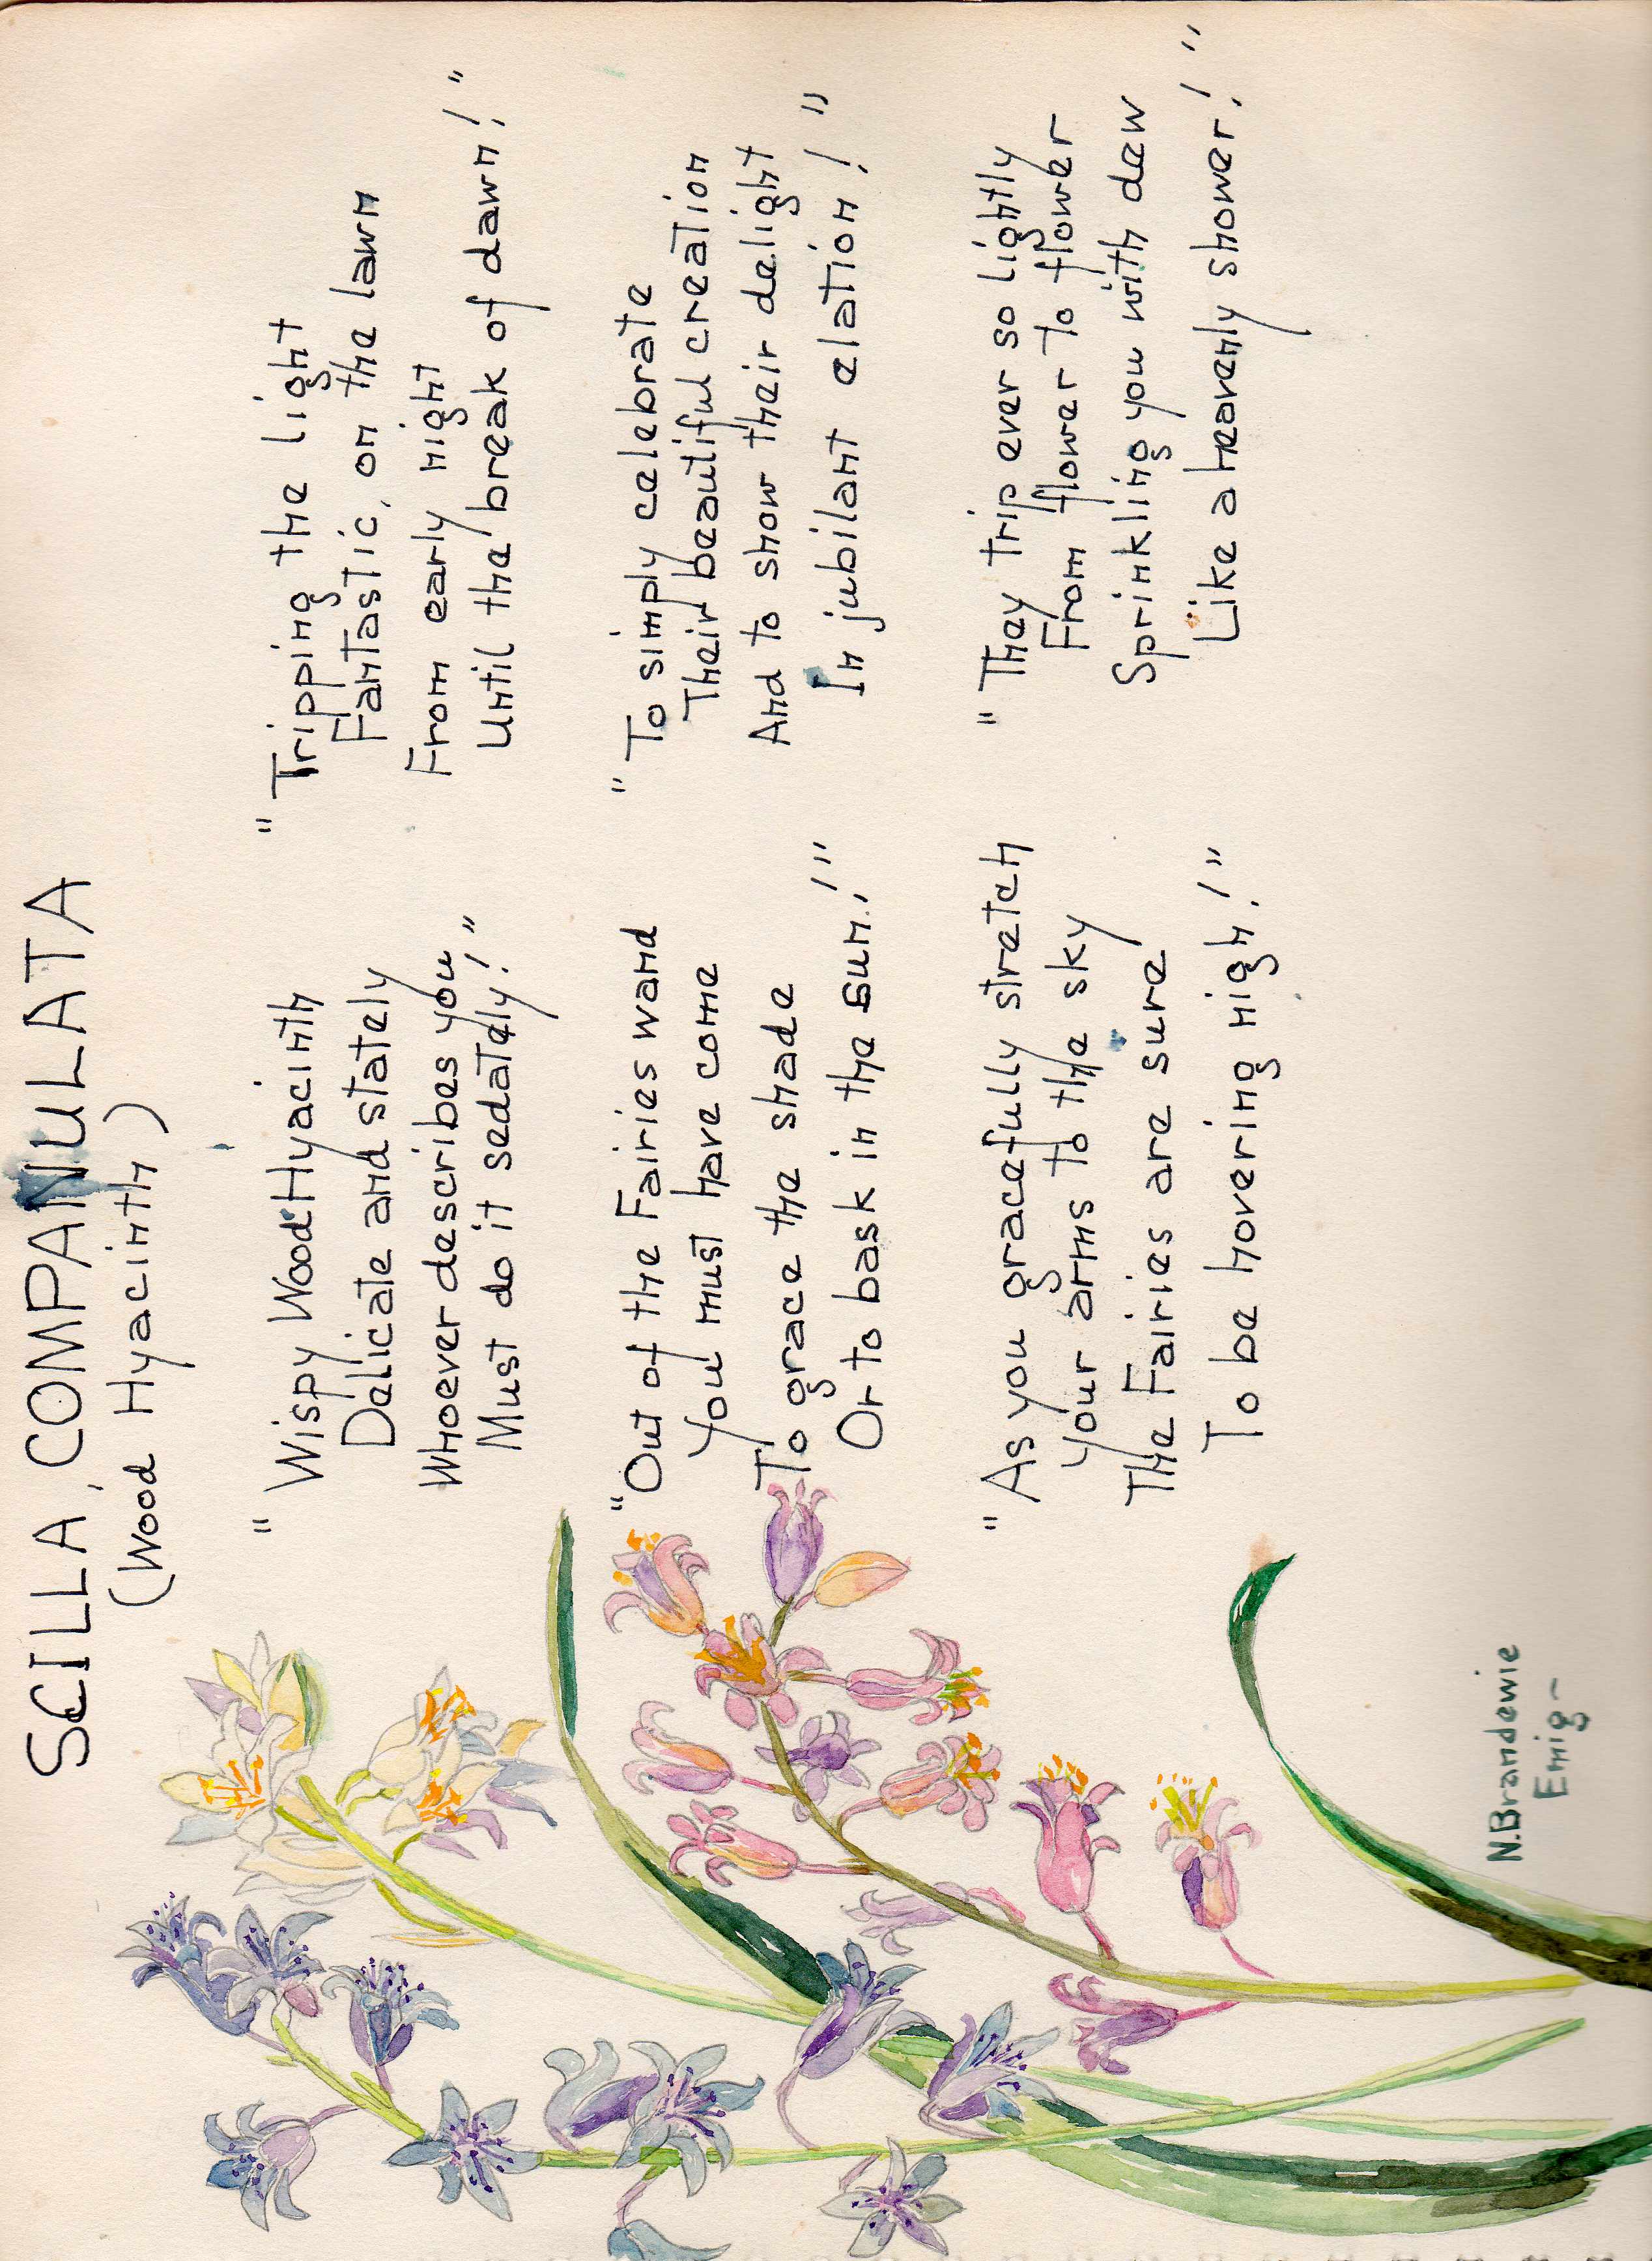 SCILLA, COMPANULATA
(Wood Hyacinth)
"Wispy Wood Hyacinth
Delicate and stately
Whoever describes you
Must do it sedately!"
"Out of the Fairies wand
You must have come
To grace the shade
Or to bask in the sun!"
"As you gracefully stretch
Your arms to the sky
The Fairies are sure
To be hovering high!"
"Tripping the light
Fantastic, on the lawn
From early night
Until the break of dawn!"
"To simply celebrate
Their beautiful creation
And to show their delight
In jubilant elation!"
"They trip ever so lightly
From flower to flower
Sprinkling you with dew
Like a heavenly shower!"
N. Brandewie
Emig~